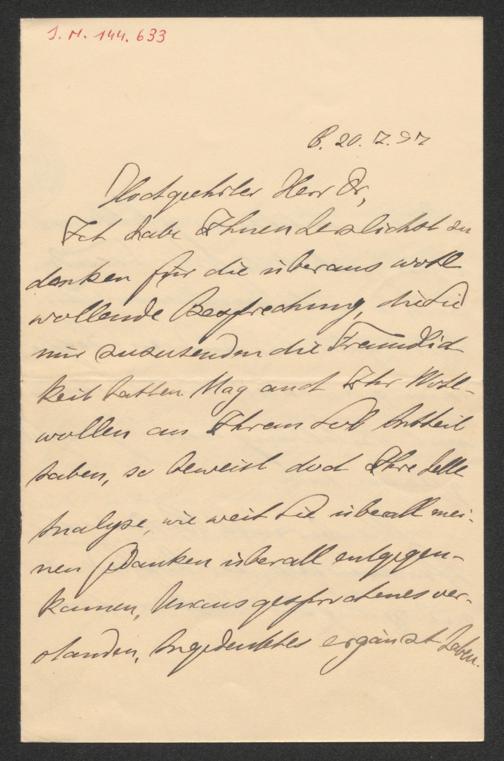 J. N. 144.633
B. 20.7.97
Hochgeehrter Herr Dr,
Ich habe Ihnen herzlichst zu
danken für die überaus wohl
wollende Besprechung, die Sie
mir zuzusenden die Freundlich
keit hatten. Mag auch Ihr Wohl-
wollen an Ihrem Lob Antheil
haben, so beweist doch Ihre helle
Analyse, wie weit Sie überall mei-
nen Gedanken überall entgegen-
kamen, Unausgesprochenes ver-
standen, Angedeutetes ergänzt haben.